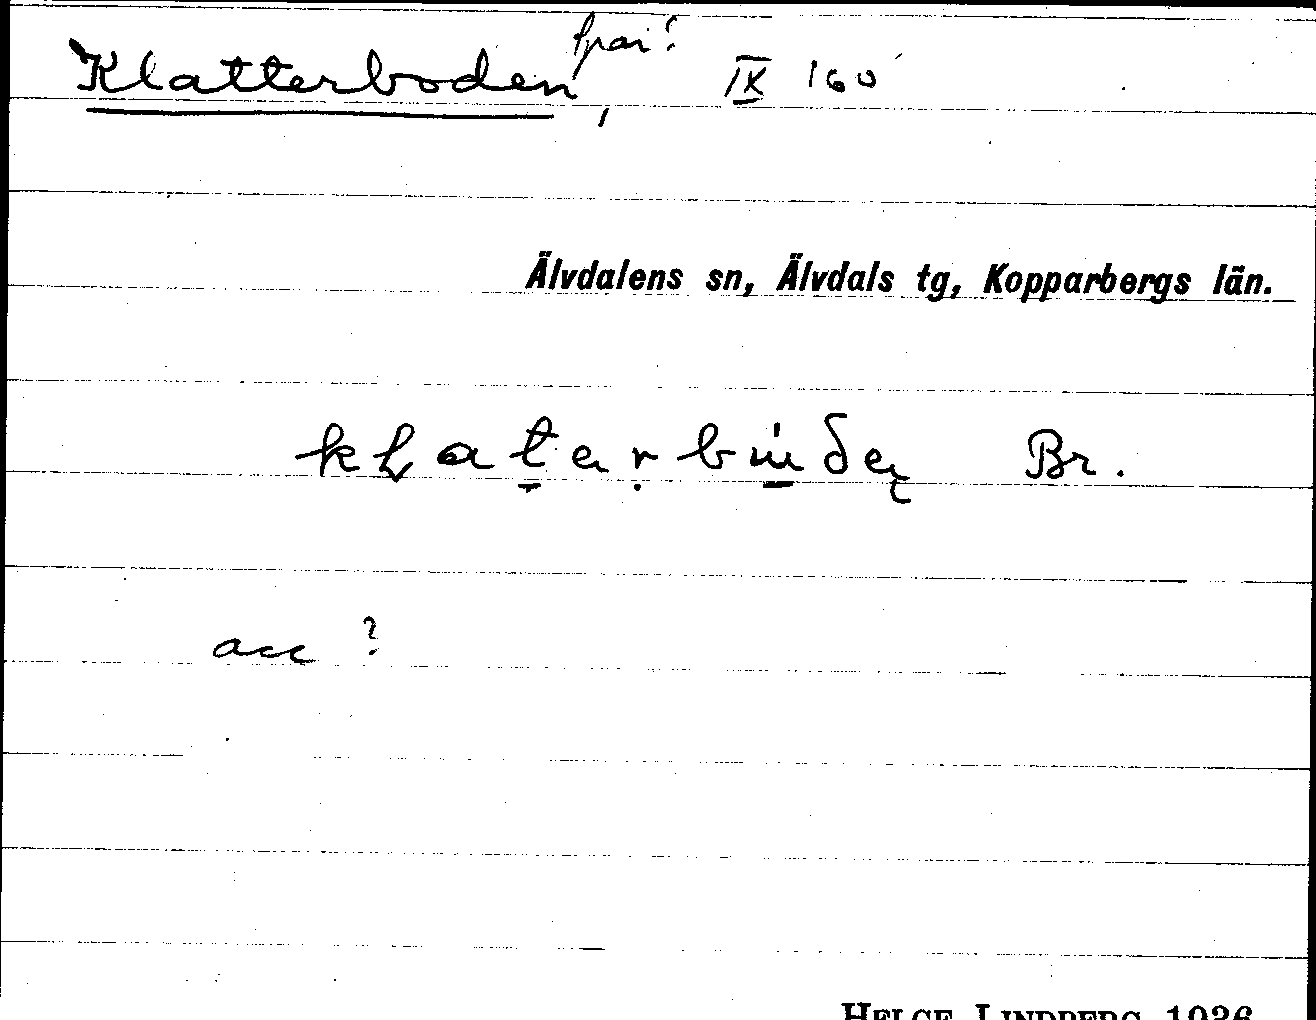 Klatterboden, IX 160
Älvdalens sn, Älvdals tg, Kopparbergs län.
Br.
acc ?
HELGE LINDBERG 1936